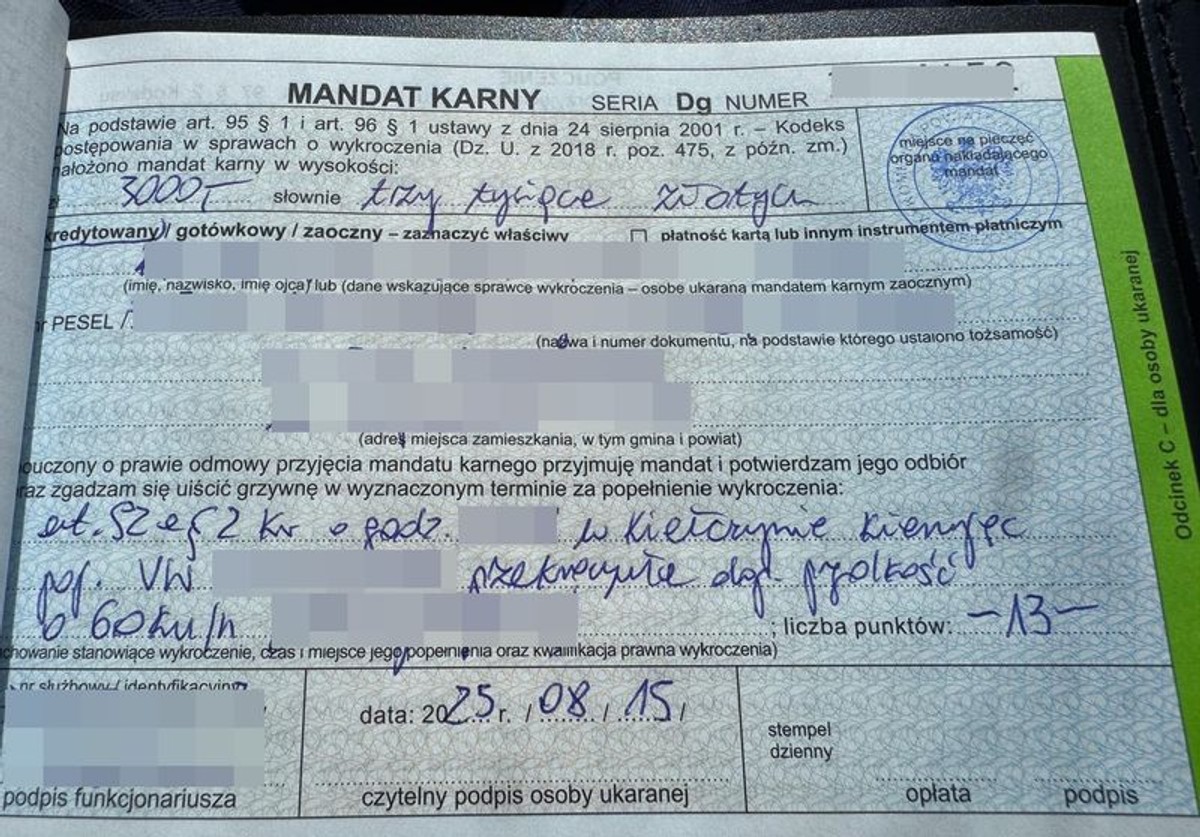 MANDAT KARNY SERIA Dg NUMER
Na podstawie art. 95 § 1 i art. 96 § 1 ustawy z dnia 24 sierpnia 2001 r. – Kodeks
postępowania w sprawach o wykroczenia (Dz. U. z 2018 r. poz. 475, z późn. zm.)
nałożono mandat karny w wysokości:
miejsce na pieczęć
organu nakładającego
mandat
3000,- słownie trzy tysiące złotych
kredytowany / gotówkowy / zaoczny – zaznaczyć właściwy
płatność kartą lub innym instrumentem płatniczym
(imię, nazwisko, imię ojca) lub (dane wskazujące sprawcę wykroczenia – osobę ukaraną mandatem karnym zaocznym)
nr PESEL /
(nazwa i numer dokumentu, na podstawie którego ustalono tożsamość)
(adres miejsca zamieszkania, w tym gmina i powiat)
ouczony o prawie odmowy przyjęcia mandatu karnego przyjmuję mandat i potwierdzam jego odbiór
raz zgadzam się uiścić grzywnę w wyznaczonym terminie za popełnienie wykroczenia:
w Kiełczynie kierując
poj. VW przekroczyła dop. prędkość
o 60 km/h ; liczba punktów: -13-
chowanie stanowiące wykroczenie, czas i miejsce jego popełnienia oraz kwalifikacja prawna wykroczenia)
nr służbowy / identyfikacyjny
data: 2025 r. / 08 / 15 /
stempel
dzienny
podpis funkcjonariusza
czytelny podpis osoby ukaranej
opłata
podpis
Odcinek C – dla osoby ukaranej